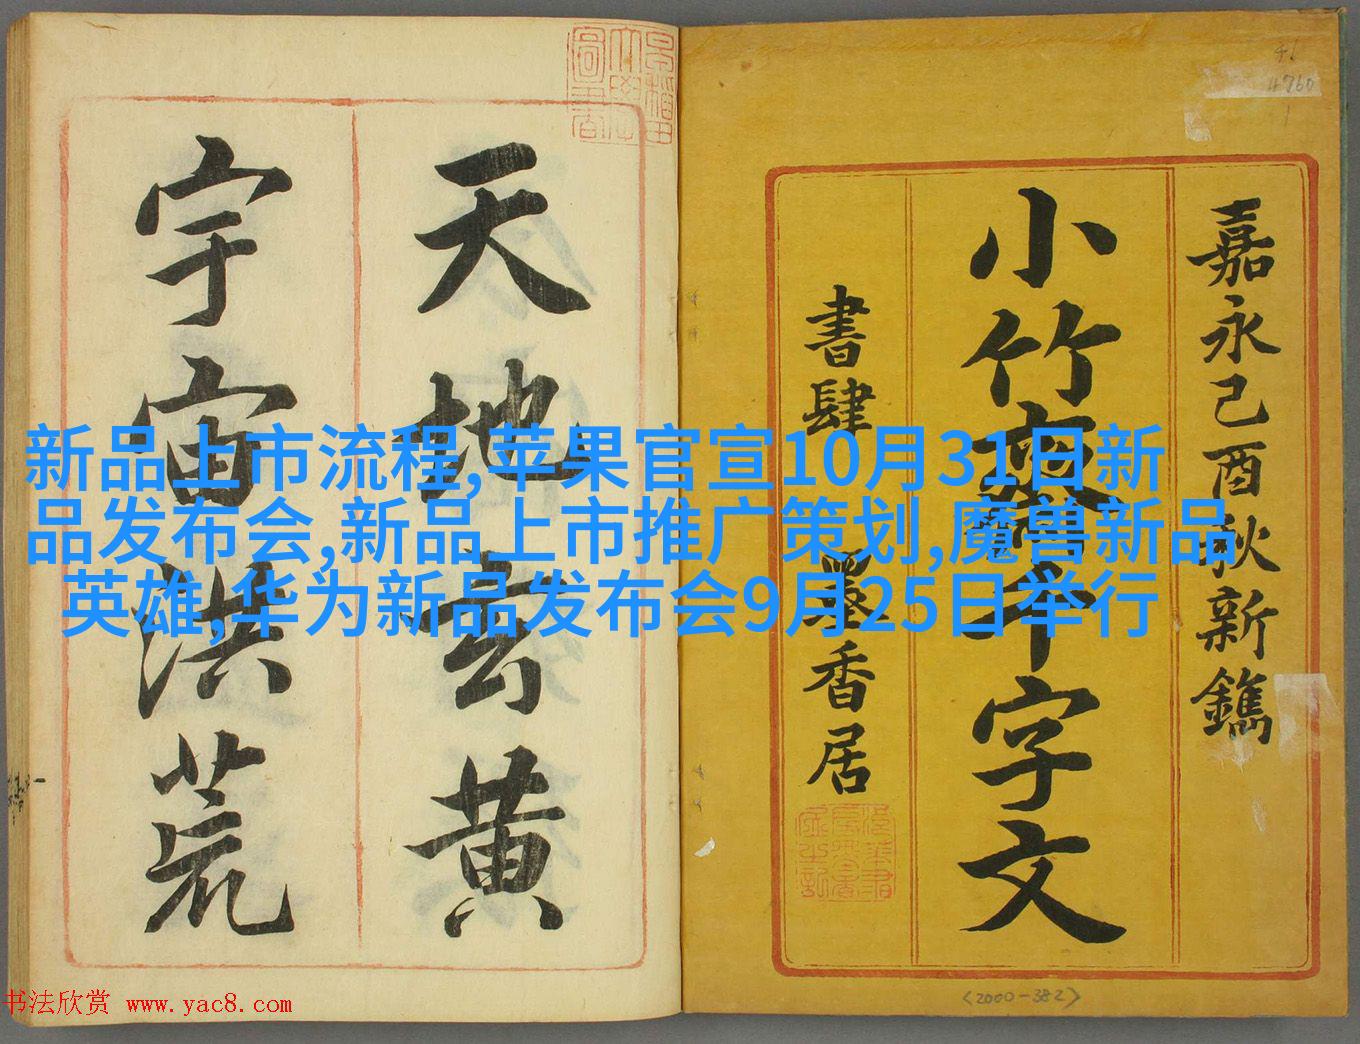 嘉永己酉秋新鐫
小竹齋千字文
書肆 墨香居
天地玄黃
宇宙洪荒
新品上市流程,苹果官宣10月31日新
品发布会,新品上市推广策划,魔兽新品
英雄,华为新品发布会9月25日举行
4760
<2000-382>
书法欣赏 www.yac8.com